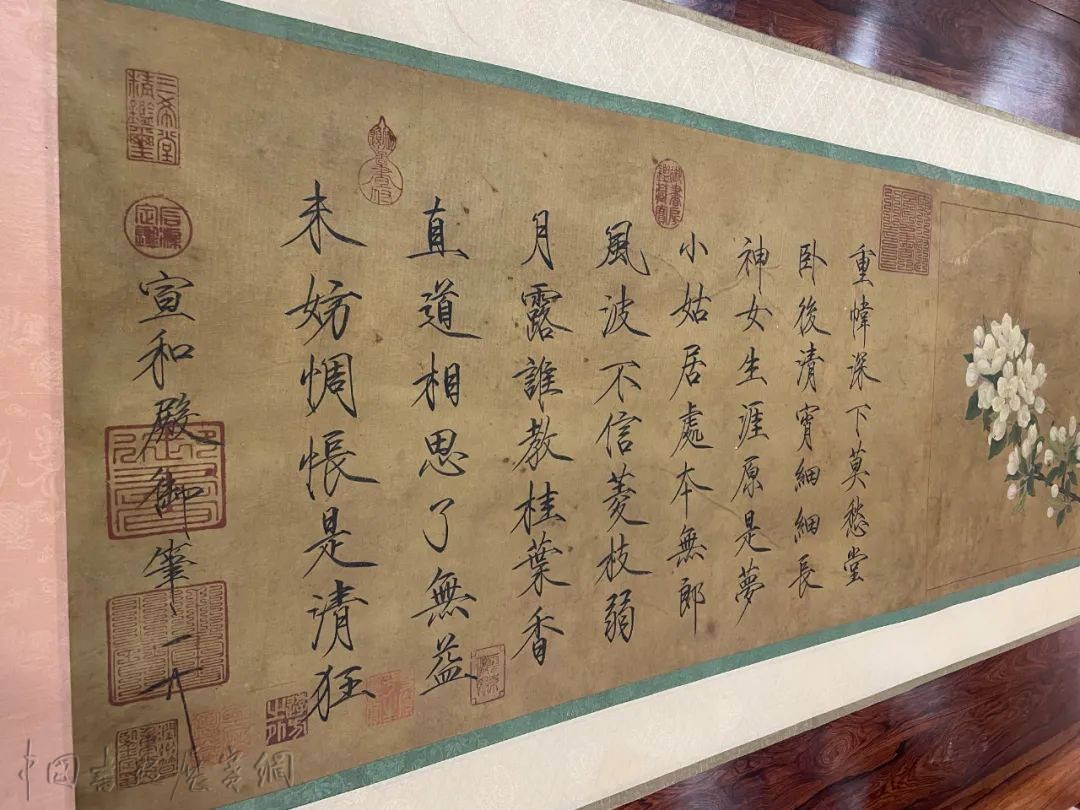 重幃深下莫愁堂
卧後清宵細細長
神女生涯原是夢
小姑居處本無郎
風波不信菱枝弱
月露誰教桂葉香
直道相思了無益
未妨惆悵是清狂
宣和殿御筆
三希堂精鑑璽